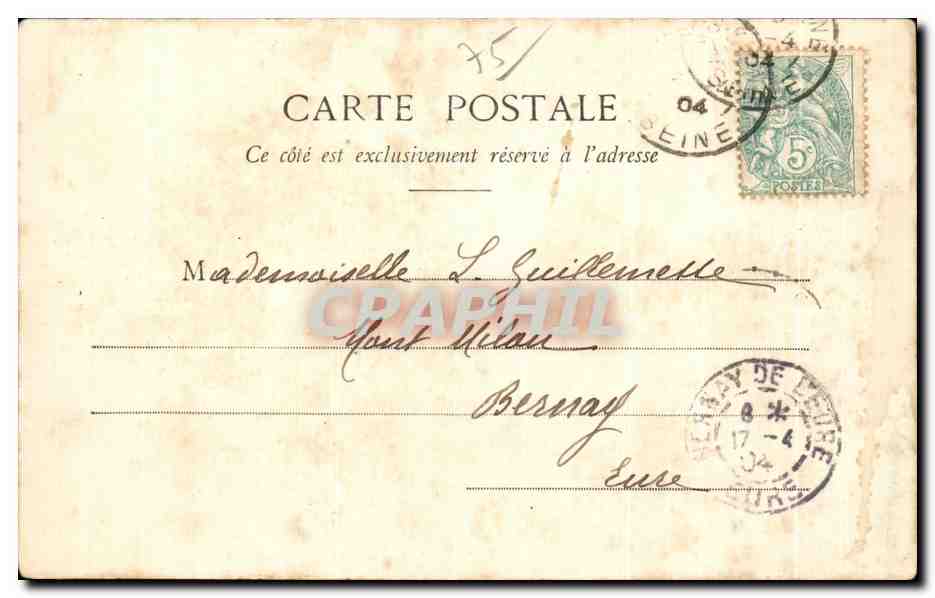 75
CARTE POSTALE
Ce côté est exclusivement réservé à l'adresse
04
SEINE
5c
POSTES
Mademoiselle L. Guillemette
CPAPHIL
Mont Milon
Bernay
Eure
BERNAY DE L'EURE
8 *
17 - 4
04